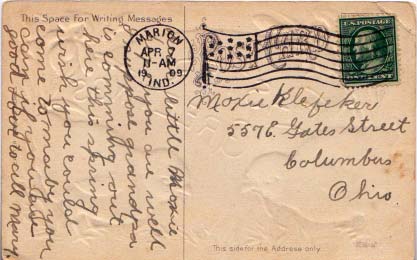 This Space For Writing Messages
little Moxie
you are well
suppose grandpa
is coming out
here this spring
wish you could
come to maby you
can if you are
good dont to call Mary.
MARION
APR 7
11-AM
1909
IND.
U.S. POSTAGE
ONE CENT
Moxie Klefeker
557 E. Gates Street
Columbus
Ohio.
This side for the Address only.